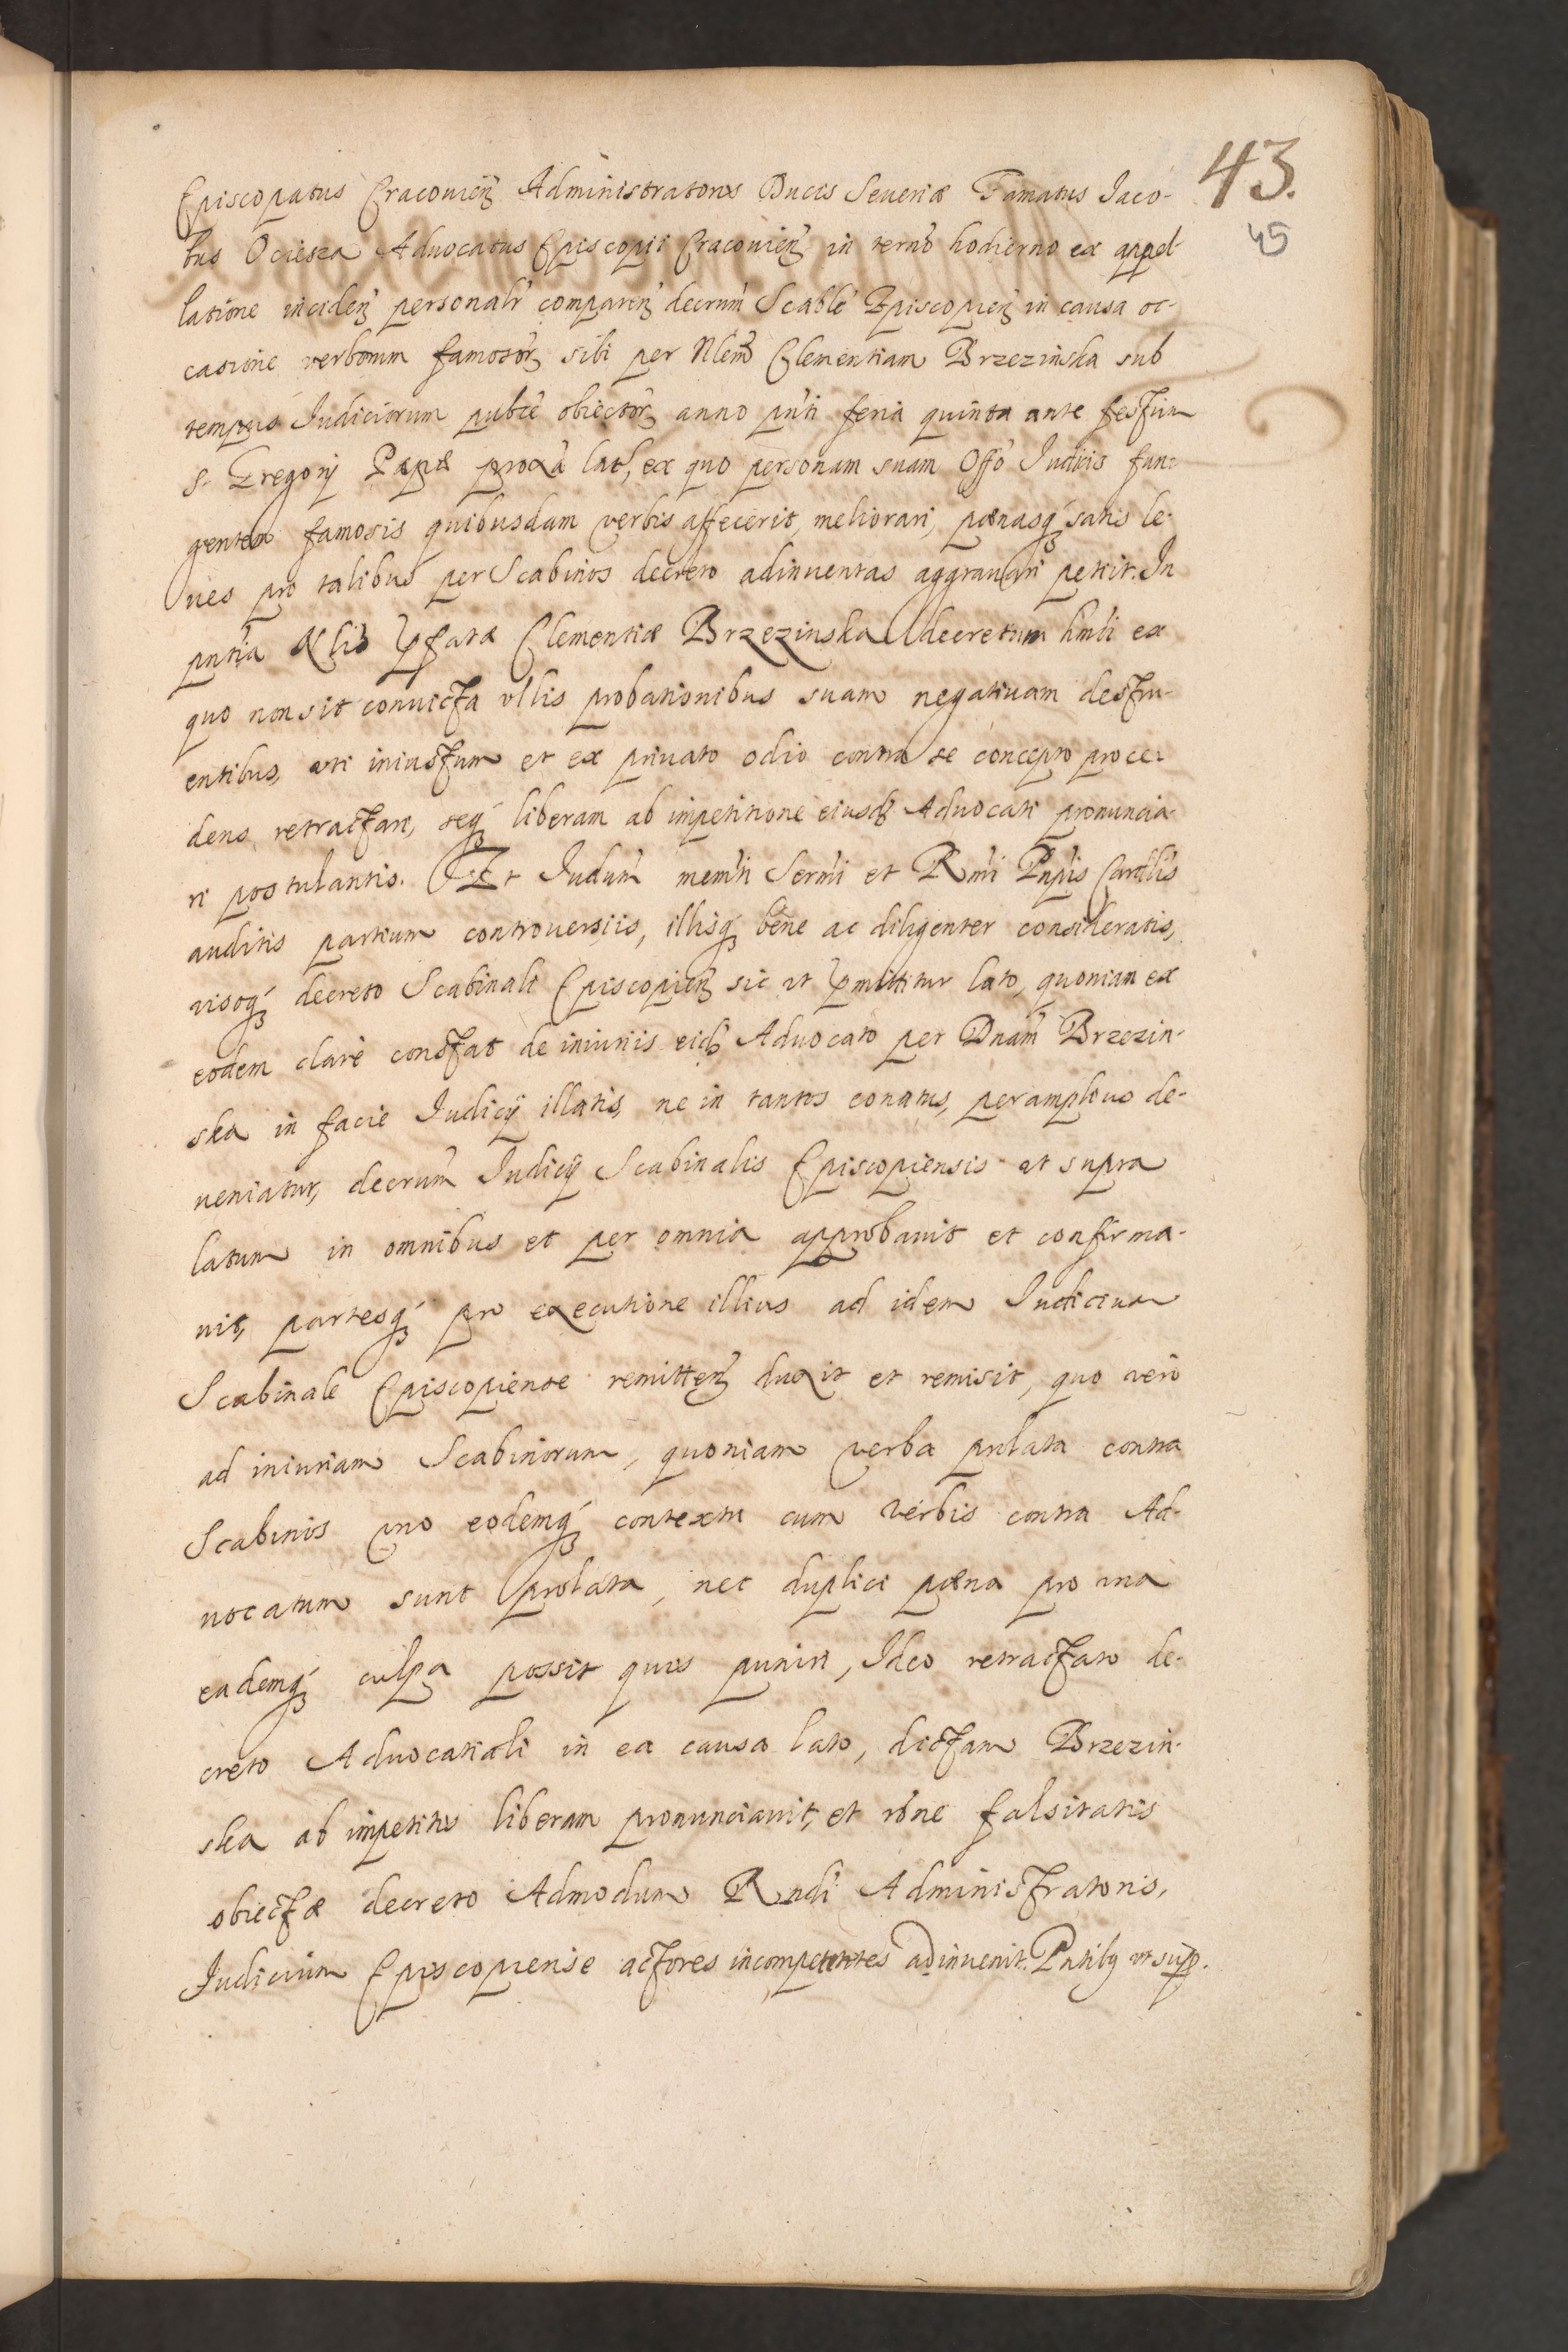 43.
45
Episcopatus Cracovien̄ Administratoris Ducis Severiæ Famatus Iaco-
bus Ociesza Advocatus Episcopii Cracovien̄ in termō hodierno ex appel-
latione inciden̄ personalr̄ comparen̄ decrum̄ Scablē Episcopien̄ in causa oc-
casione verborum famosor̄ sibi per Nlem̄ Clementiam Brzezinska sub
tempus Iudiciorum pubcē obiector̄ anno pn̄ti feria quinta ante festum
S. Gregorij Papæ proxa lat, ex quo personam suam Offō Iudicis fun-
gentem famosis quibusdam verbis affecerit, meliorari, pænasq́ satis le-
ues pro talibus per Scabinos decreto adinuentas aggrauari petiit. In
pn̄tia Nlis p̄fatæ Clementiæ Brzezinska decretum hm̄di ex
quo non sit convicta ullis probationibus suam negatiuam destru-
entibus, uti iniustum et ex priuato odio contra se concepto proce-
dens, retractari, seq́ liberam ab impetitione eiusd Advocati pronuncia-
ri postulantis. Et Iudum̄ mem̄ti Serm̄i et Rm̄i Pn̄pis Cardlis
auditis partium controuersiis, illisq́ bene ac diligenter consideratis,
visoq́ decreto Scabinali Episcopien̄ sic ut p̄mittitur lato, quoniam ex
eodem clarè constat de iniuriis eid Advocato per Dnam̄ Brzezin-
ska in facie Iudicij illatis, ne in tantos conatus, peramplius de-
ueniatur, decrum̄ Iudicij Scabinalis Episcopiensis ut supra
latum in omnibus et per omnia approbauit et confirma-
uit, partesq́ pro executione illius ad idem Iudicium
Scabinale Episcopiense remitten̄ duxit et remisit, quo verò
ad iniuriam Scabinorum, quoniam verba prlata contra
Scabinos uno eodemq́ contextu cum verbis contra Ad-
vocatum sunt prolata, nec duplici pæna pro una
eademq́ culpa possit quis puniri, Ideo retractato de-
creto Advocatiali in ea causa lato, dictam Brzezin-
ska ab impetitu liberam pronunciauit, et rōne falsitatis
obiectæ decreto Admodum Rndi Administratoris,
Iudicium Episcopiense actores incompetentes adinuenit. Pn̄tibq ut sup̄.